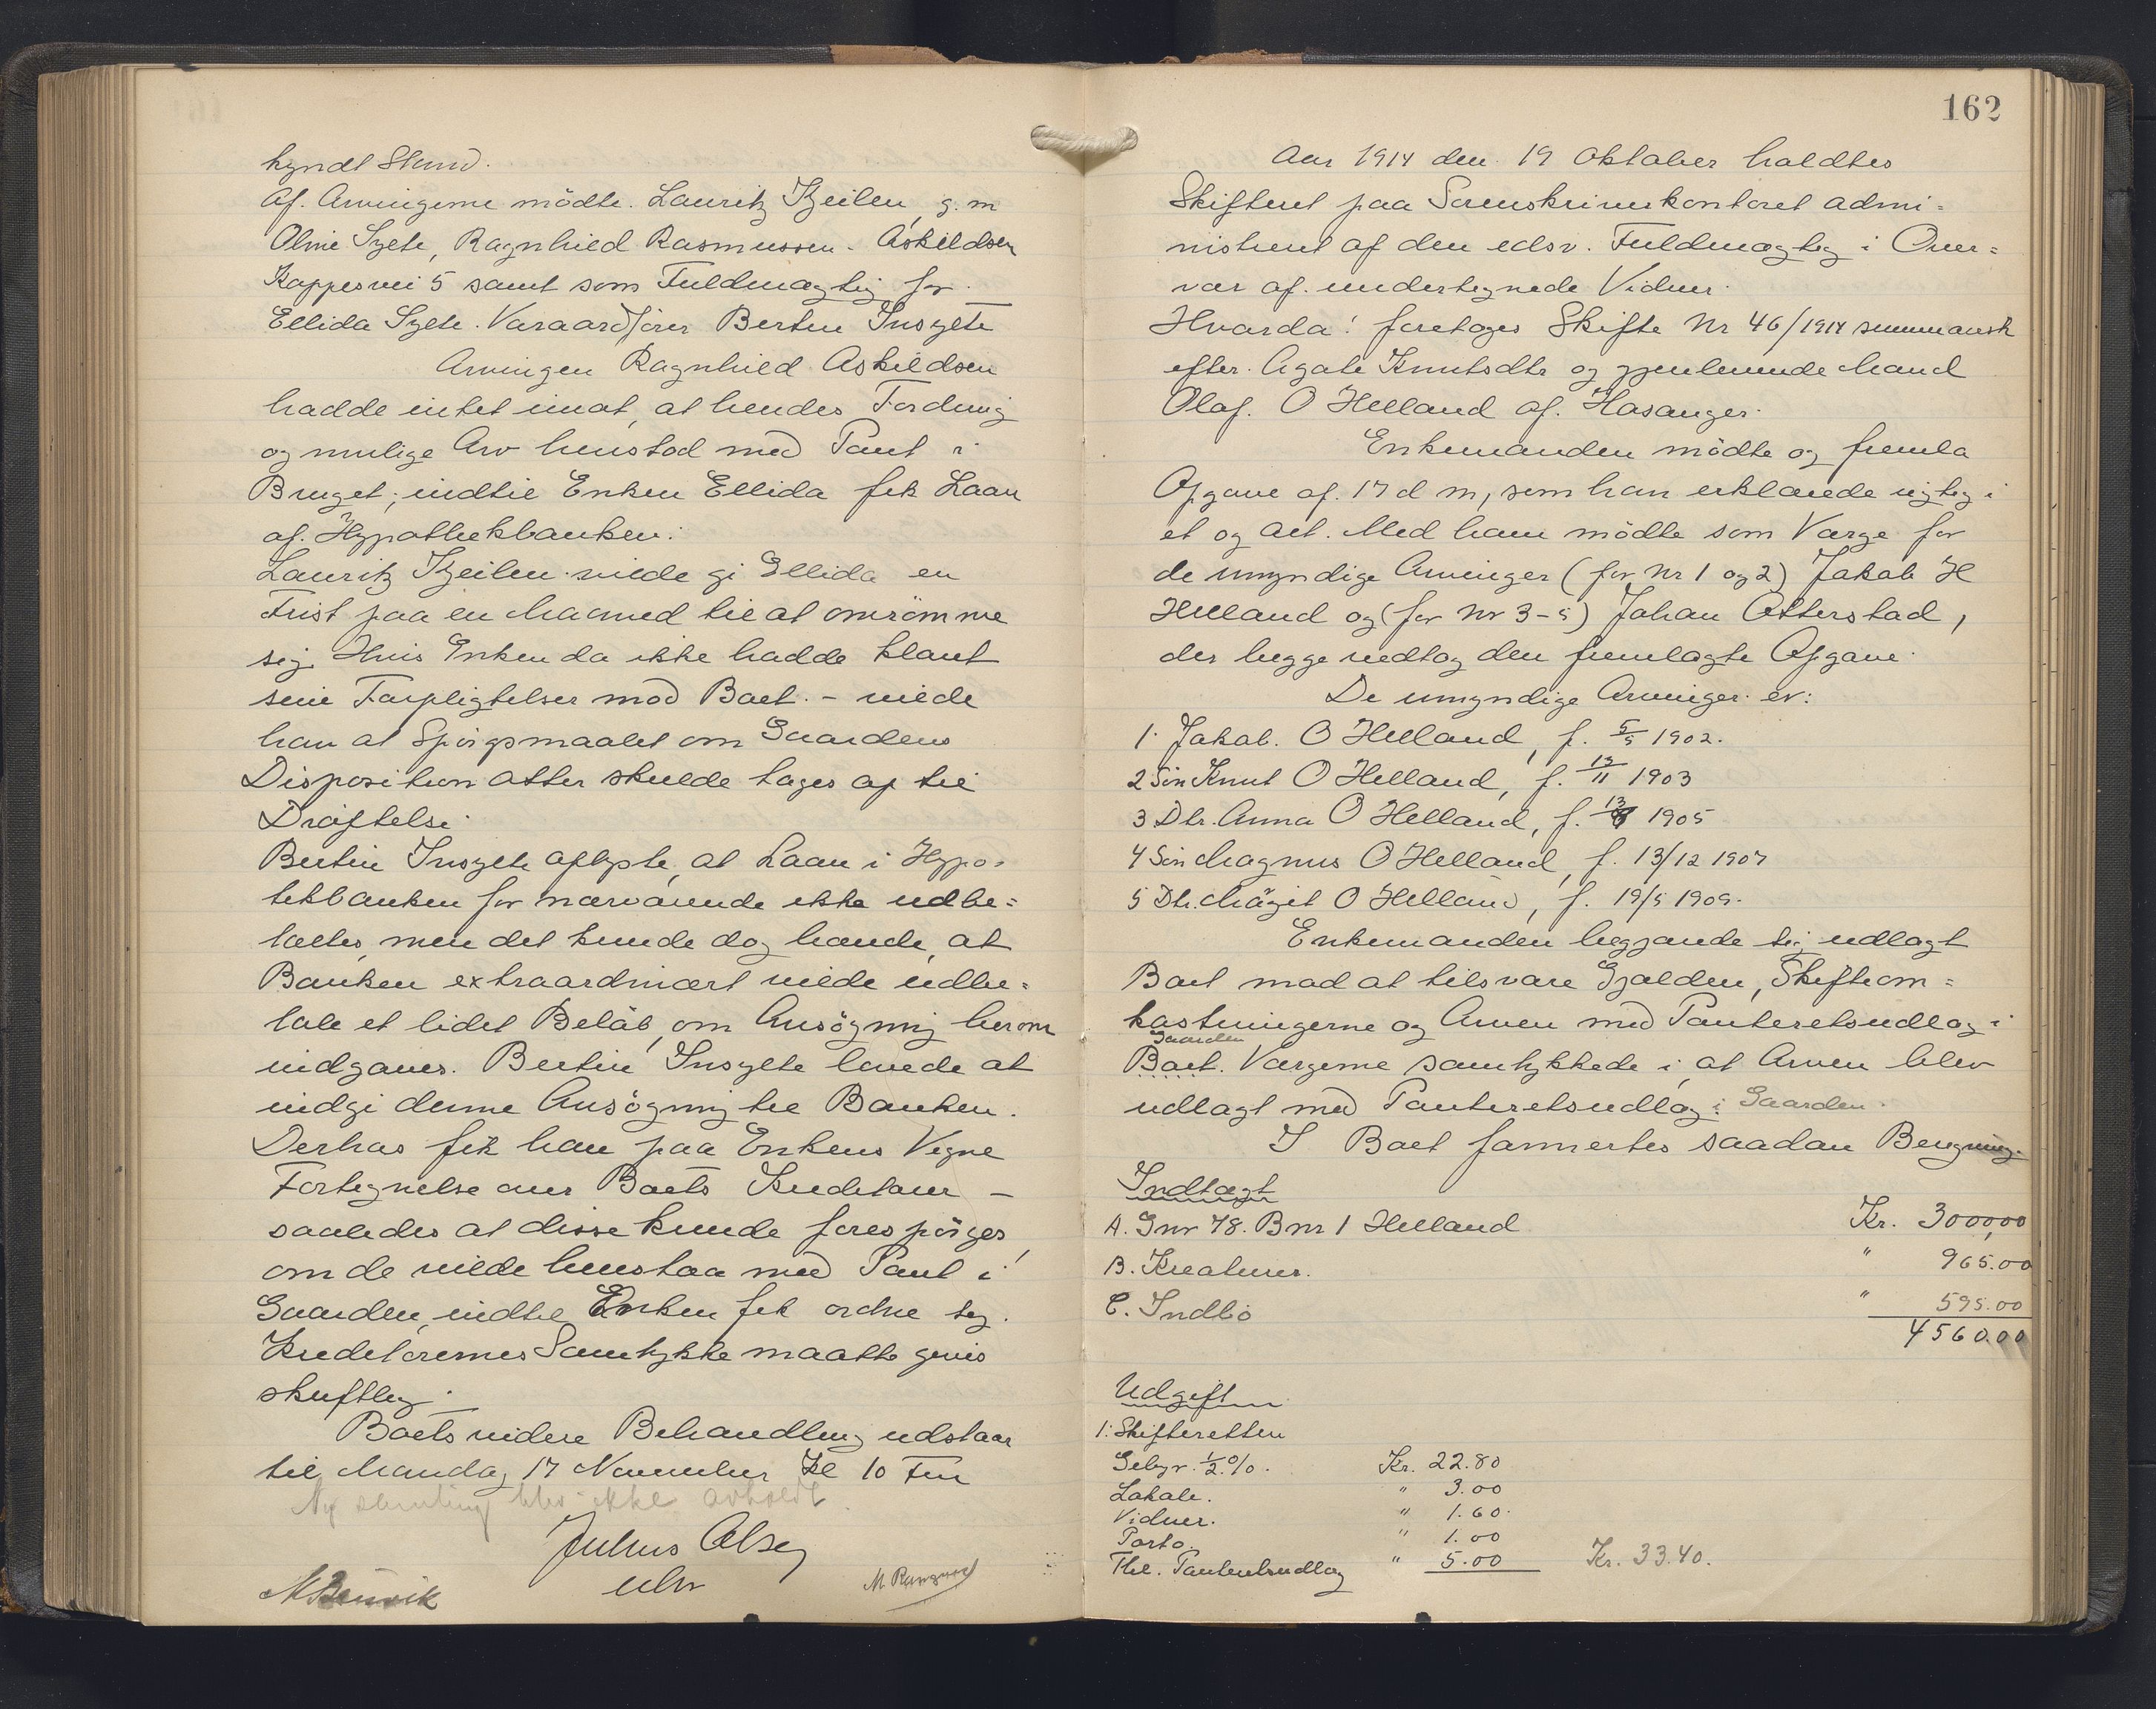 kyndt Stund.
Af. Arvingerne mödte. Lauritz Kjeilen, g. m
Oline Syete, Ragnhild Rasmussen. Askildsen
Kappesvei 5 samt som Fuldmægtig for
Ellida Syete. Varaordfører Bertin Insyete
Arvingen Ragnhild Askildsen
hadde intet imot, at hendes Fordring
og mulige Arv henstod med Pant i
Bruget, indtil Enken Ellida fik Laan
af. Hypothekbanken.
Lauritz Kjeilen vilde gi Ellida en
Frist paa en Maaned til at omrömme
sig. Hvis Enken da ikke hadde klart
sine Forpligtelser mod Boet. - vilde
han at Spörgsmaalet om Gaardens
Disposition atter skulde tages op til
Dröftelse.
Bertin Insyete oplyste, at Laan i Hypo=
tekbanken for nærværende ikke udbe=
taltes, men det kunde dog hænde, at
Banken extraordinært vilde udbe=
tale et lidet Belöb, om Ansögning herom
indgaves. Bertin Insyete lovede at
indgi denne Ansögning til Banken.
Derhos fik han paa Enkens Vegne
Fortegnelse over Boets Kreditorer -
saaledes at disse kunde forespörges,
om de vilde henstaa med Pant i
Gaarden, indtil Enken fik ordne sig.
Kreditorernes Samtykke maatte gives
skriftlig.
Boets videre Behandling udstaar
til Mandag 17 November Kl 10 Fm
Ny samling blev ikke avholdt.
Julius Olsen
M. Rangnæs
162
Aar 1914 den 19 Oktober holdtes
Skifteret paa Sorenskriverkontoret admi=
nistreret af den edsv. Fuldmægtig i Over=
vær af. undertegnede Vidner.
Hvorda: foretoges Skifte Nr 46/1914 summarisk
efter. Agate Knutsdtr og gjenlevende Mand
Olaf. O Helland af. Hosanger.
Enkemanden mödte og fremla
Opgave af. 17 d m, som han erklærede rigtig i
et og alt. Med ham mödte som Værge for
de umyndige Arvinger (for Nr 1 og 2) Jakob H
Helland og (for Nr 3-5) Johan Otterstad,
der begge vedtog den fremlagte Opgave.
De umyndige Arvinger. er:
1. Jakob. O Helland, f. 5/5 1902.
2 Sön Knut O Helland, f. 12/11 1903
3 Dtr. Anna O Helland, f. 13/8 1905
4 Sön Magnus O Helland, f. 13/12 1907
5 Dtr. Mägit O Helland, f. 19/5 1909.
Enkemanden begjærede sig udlagt
Boet mod at tilsvare Gjælden, Skifteom=
kostningerne og Arven med Panteretsudlæg i
Gaarden
Boet. Værgerne samtykkede i, at Arven blev
udlagt med Panteretsudlæg i Gaarden.
I Boet formertes saadan Beregning.
Indtægt
A. Gnr 78. Bnr 1 Helland Kr. 3000,00
B. Kreaturer. " 965.00
C. Indbo " 595.00
4560.00
Udgift
1. Skifteretten
Gebyr. 1/2 %. Kr. 22.80
Lokale. " 3.00
Vidner. " 1.60.
Porto. " 1.00
Thl. Panteretsudlæg " 5.00 Kr. 33.40.